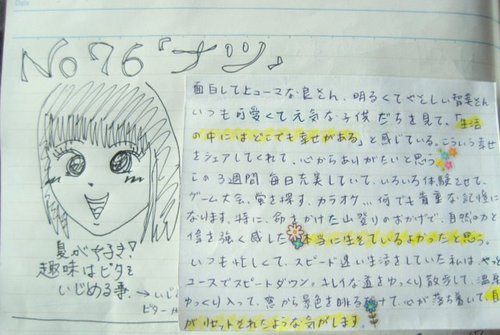 No 76 「ナツ」
夏が好き!
趣味はピタを
いじめる事。
→いじ
ピター
面白してヒューマな良さん、明るくてやさしい智美さん
いつも可愛くて元気な子供だちを見て、「生活
の中にはどこでも幸せがある」と感じている。こういう幸せ
をシェアしてくれて、心からありがたいと思う
この3週間 毎日充実していて、いろいろ体験させて、
ゲーム大会、蛍を探す、カラオケ…何でも貴重な記憶に
なります。特に、命をかけた山登りのおかげで、自然の力と
偉を強く感した 本当に生きているよかったと思う。
いつも忙しくて、スピード速い生活をしていた私は、やっと
ユースでスピードダウン。キレイな道をゆっくり散歩して、温泉
ゆっくり入って、窓から景色を眺る けて、心が落ち着いて、自
がリセットされたような気がします。